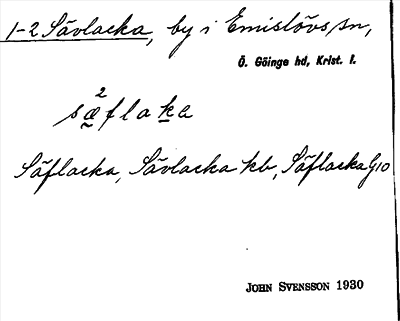 1-2 Sävlacka, by i Emislövs sn,
Ö. Göinge hd, Krist. l.
2
sæflaka
Säflacka, Sävlacka kb, Säflacka G10
JOHN SVENSSON 1930